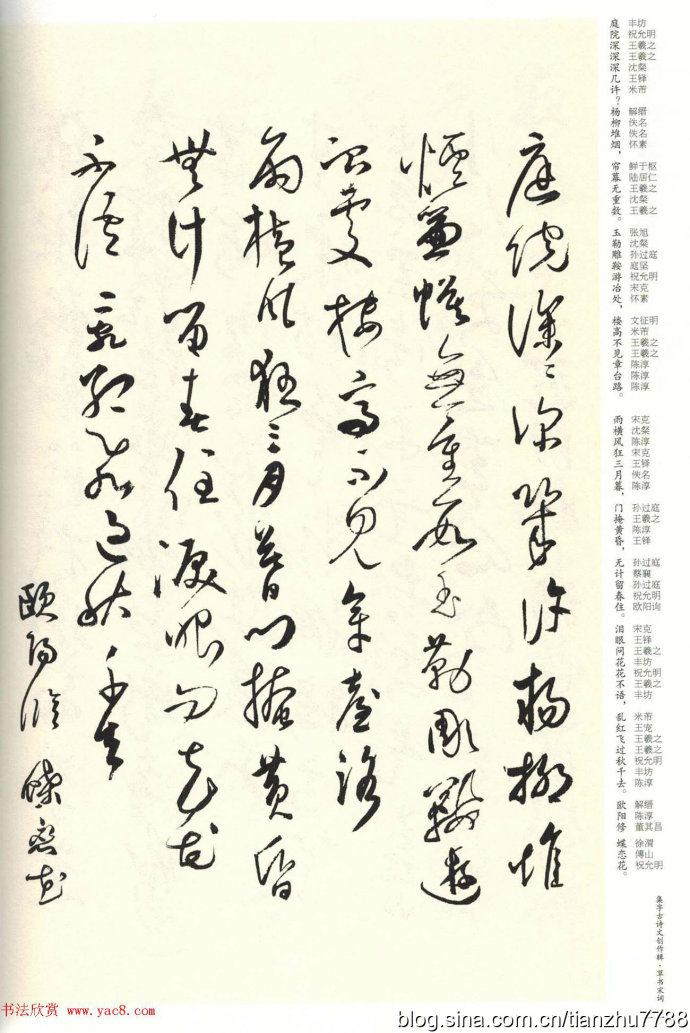 庭院深〻深幾許楊柳堆
煙簾幙無重數玉勒雕鞍遊
冶處樓高不見章臺路
雨橫風狂三月暮門掩黃昏
無計留春住淚眼問花花
不語亂紅飛過秋千去
歐陽修 蝶戀花
庭 丰坊
院 祝允明
深 王羲之
深 王羲之
深 沈粲
几 王铎
许？ 米芾
杨 解缙
柳 佚名
堆 佚名
烟， 怀素
帘 鲜于枢
幕 陆居仁
无 王羲之
重 沈粲
数。 王羲之
玉 张旭
勒 沈粲
雕 孙过庭
鞍 庭坚
游 祝允明
冶 宋克
处， 怀素
楼 文征明
高 米芾
不 王羲之
见 王羲之
章 陈淳
台 陈淳
路。 陈淳
雨 宋克
横 沈粲
风 陈淳
狂 宋克
三 王铎
月 佚名
暮， 陈淳
门 孙过庭
掩 王羲之
黄 陈淳
昏， 王铎
无 孙过庭
计 蔡襄
留 孙过庭
春 祝允明
住。 欧阳询
泪 宋克
眼 王铎
问 王羲之
花 丰坊
花 祝允明
不 王羲之
语， 丰坊
乱 米芾
红 王宠
飞 王羲之
过 王羲之
秋 祝允明
千 丰坊
去。 陈淳
欧 解缙
阳 陈淳
修 董其昌
蝶 徐渭
恋 傅山
花。 祝允明
集字古诗文创作辑·草书宋词
书法欣赏 www.yac8.com
blog.sina.com.cn/tianzhu7788